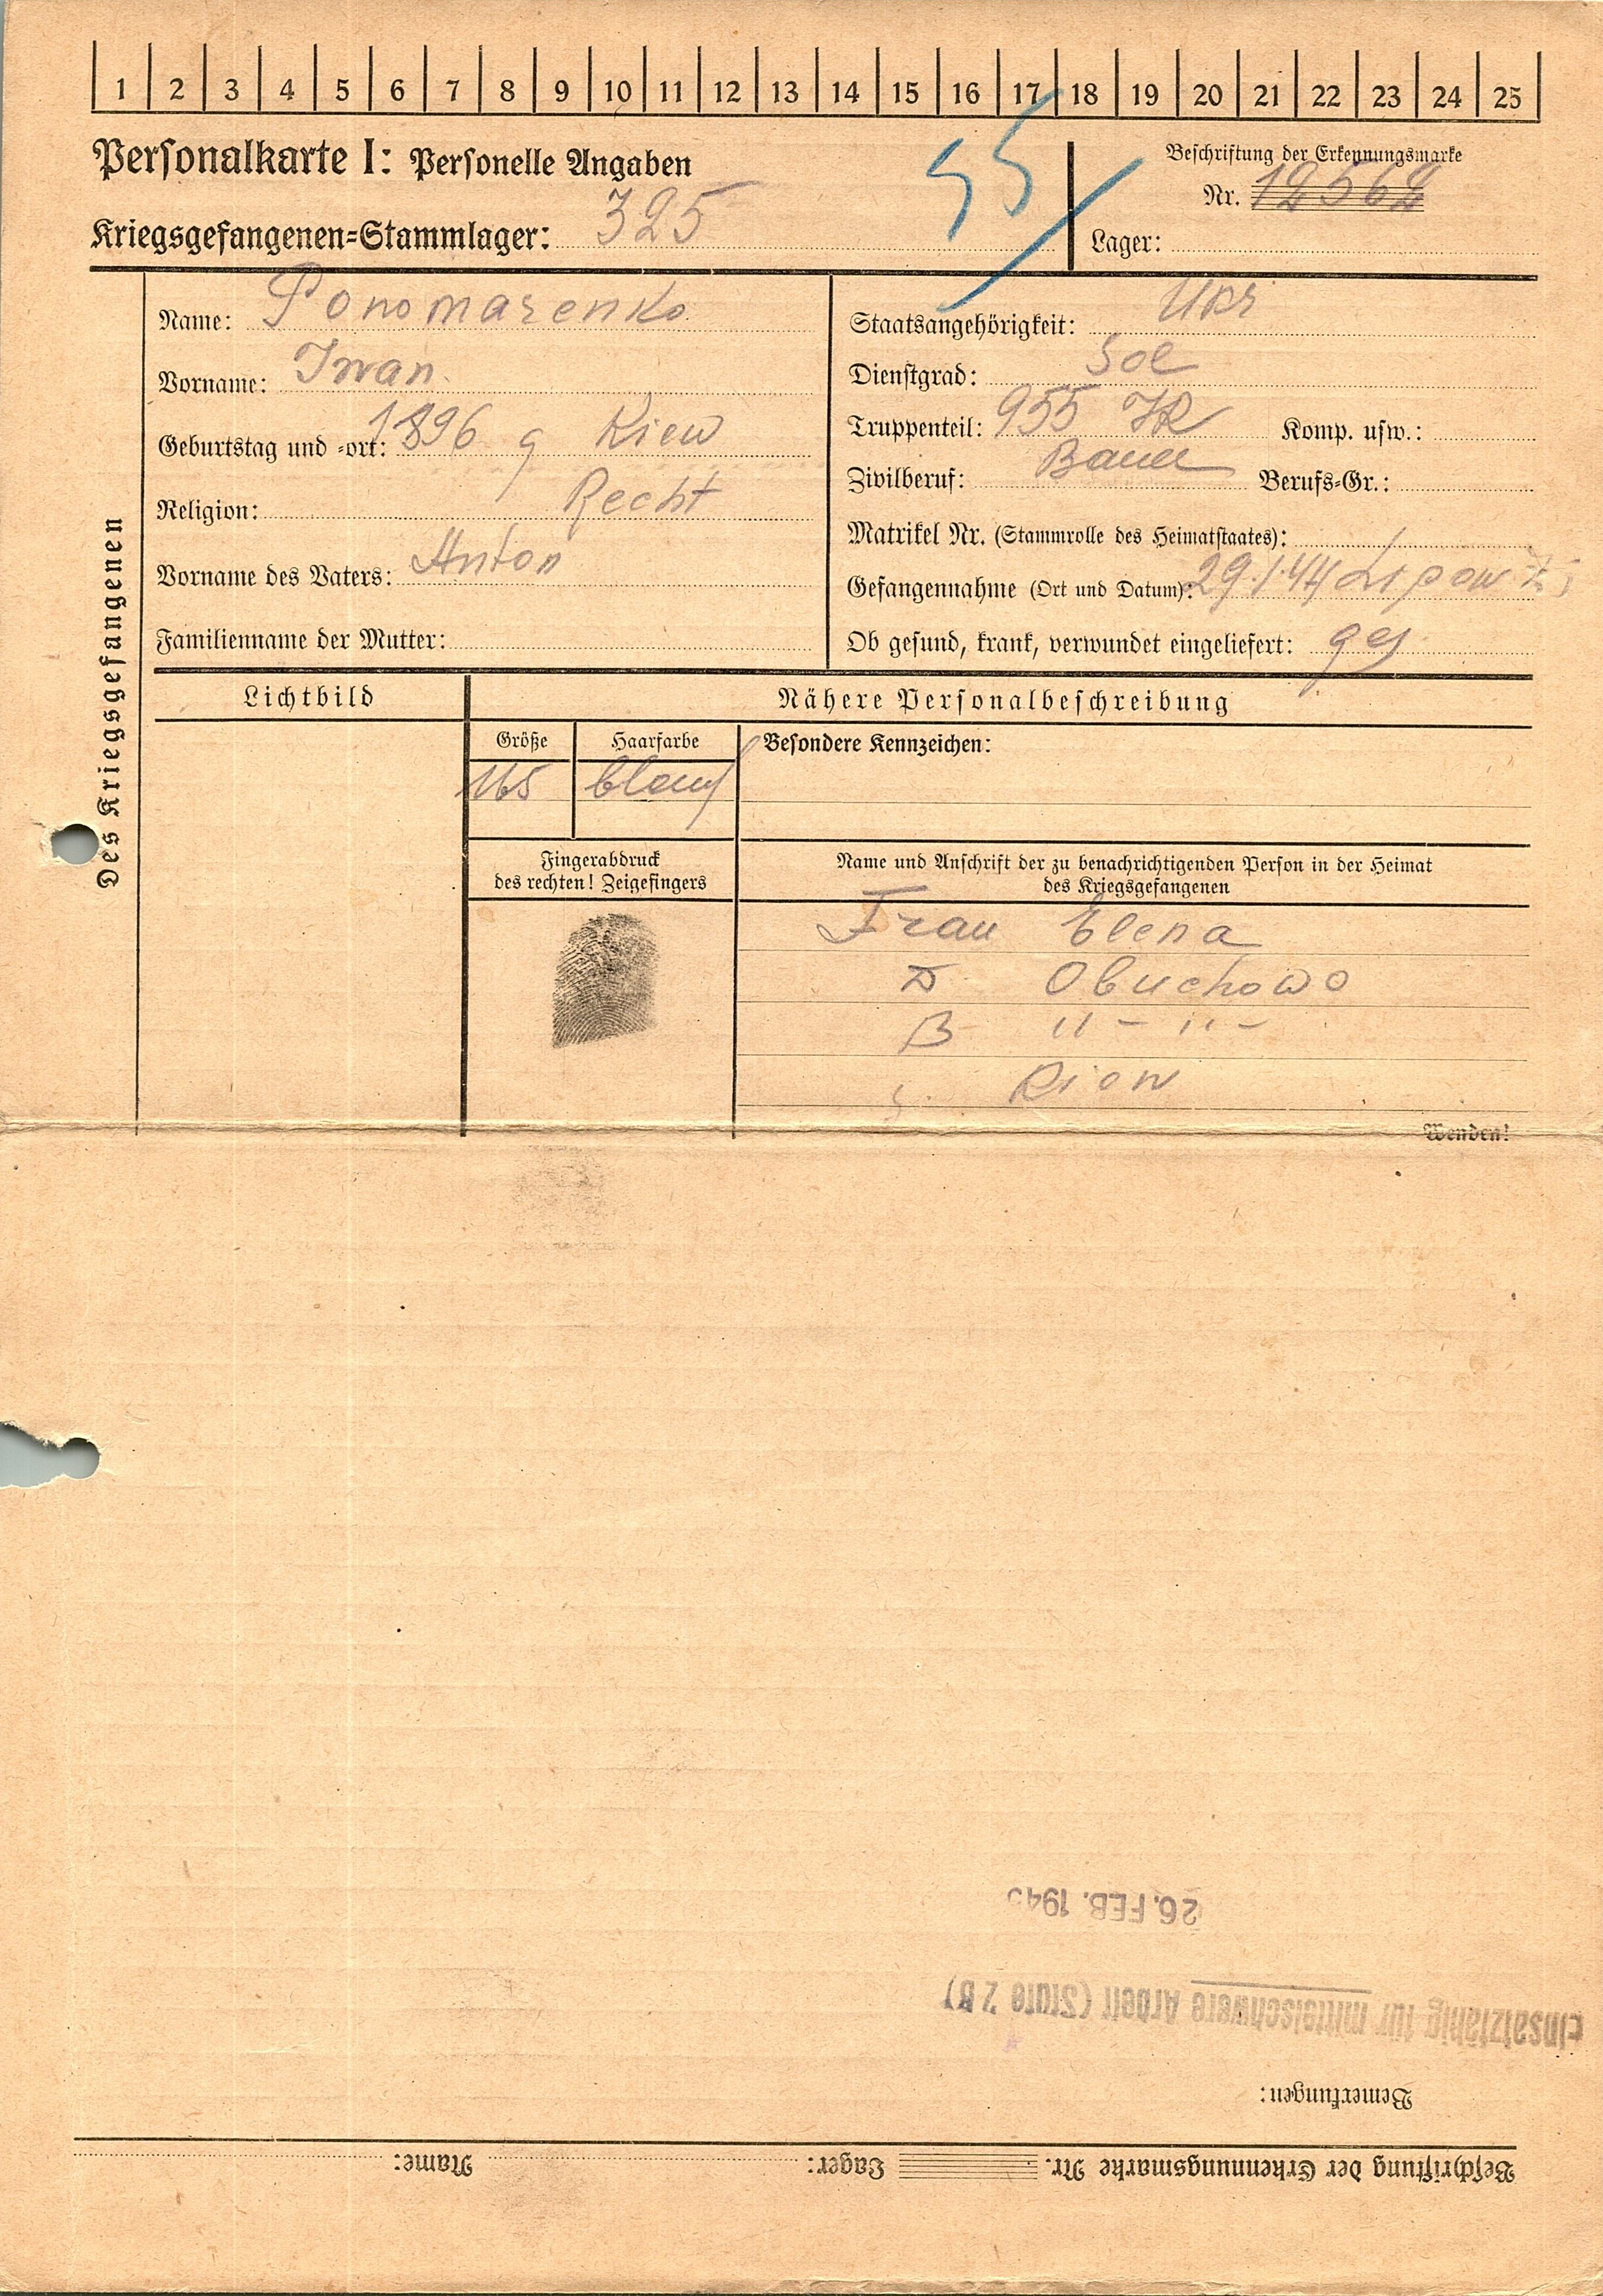 1 2 3 4 5 6 7 8 9 10 11 12 13 14 15 16 17 18 19 20 21 22 23 24 25
Personalkarte I: Personelle Angaben
55
Beschriftung der Erkennungsmarke
Nr. 12562
Kriegsgefangenen-Stammlager: 325
Lager:
Des Kriegsgefangenen
Name: Ponomarenko
Vorname: Iwan
Geburtstag und -ort: 1896 g Kiew
Religion: Recht
Vorname des Vaters: Anton
Familienname der Mutter:
Staatsangehörigkeit: Ukr
Dienstgrad: Sol
Truppenteil: 955 IR Komp. usw.:
Zivilberuf: Bauer Berufs-Gr.:
Matrikel Nr. (Stammrolle des Heimatstaates):
Gefangennahme (Ort und Datum): 29.1.44 Lipow
Ob gesund, krank, verwundet eingeliefert: ges
Lichtbild
Nähere Personalbeschreibung
Größe Haarfarbe Besondere Kennzeichen:
165
Fingerabdruck
des rechten! Zeigefingers
Name und Anschrift der zu benachrichtigenden Person in der Heimat
des Kriegsgefangenen
Frau Elena
D Obuchowo
B " - " -
Kiew
Wenden!
26. FEB. 194
einsatzfähig für mittelschwere Arbeit (Stufe 2 B)
Bemerkungen:
Beschriftung der Erkennungsmarke Nr. Lager: Name: